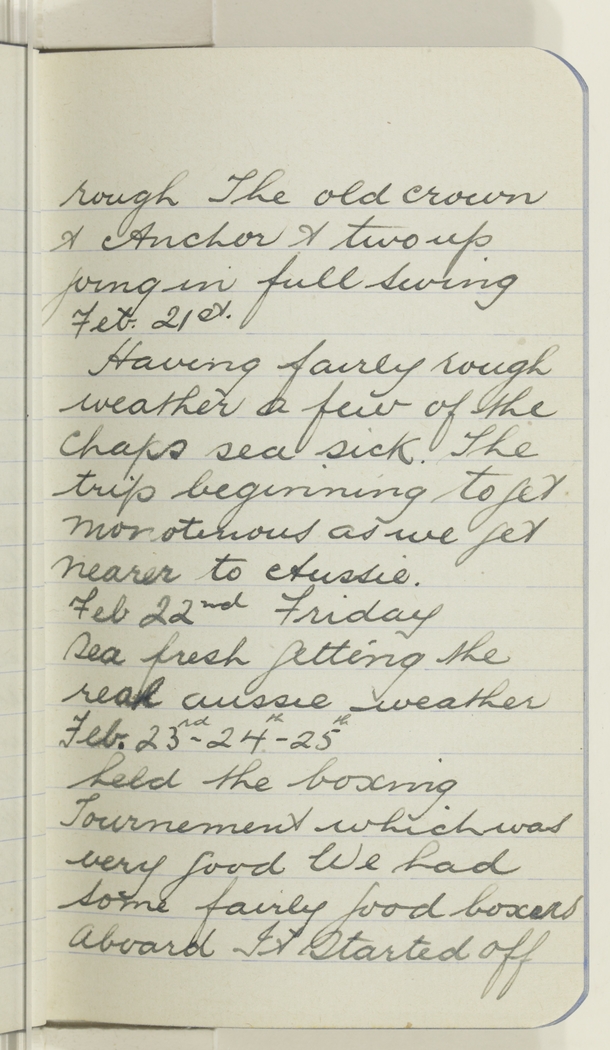 rough The old crown
& Anchor & two up
going in full swing
Feb. 21st.
Having fairly rough
weather a few of the
chaps sea sick. The
trip beginning to get
monotenous as we get
nearer to Aussie.
Feb 22nd Friday
Sea fresh getting the
real aussie weather
Feb. 23rd-24th-25th
held the boxing
Tournement which was
very good We had
some fairly good boxers
aboard It Started off